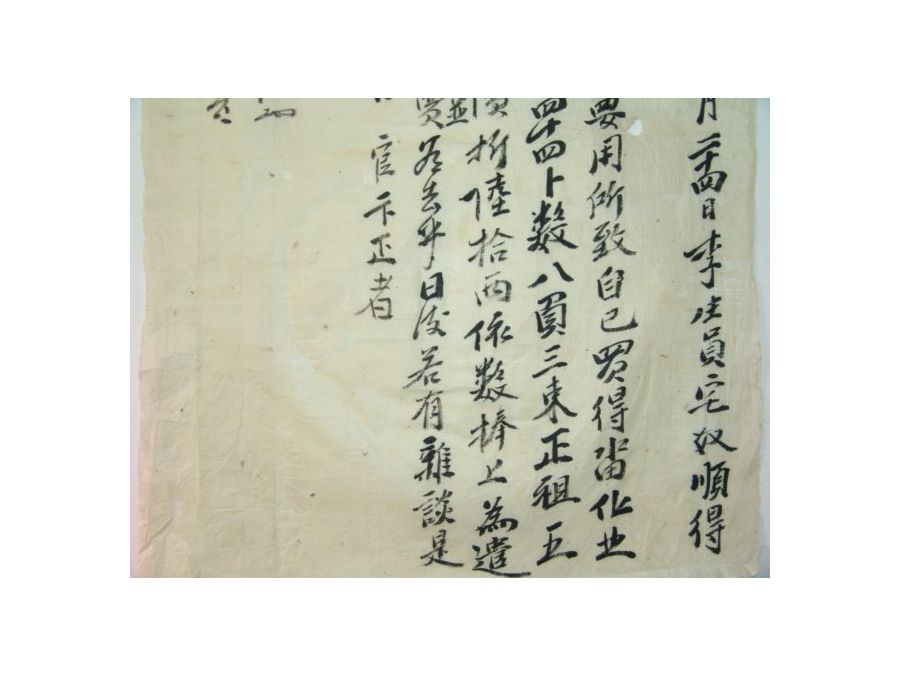 月二十四日李生員宅奴順得
要用所致自己買得畓伏在
四十四卜数八負三束正租五
價折陸拾両依数捧上為遣
賣為去乎日後若有雜談是
官卞正者